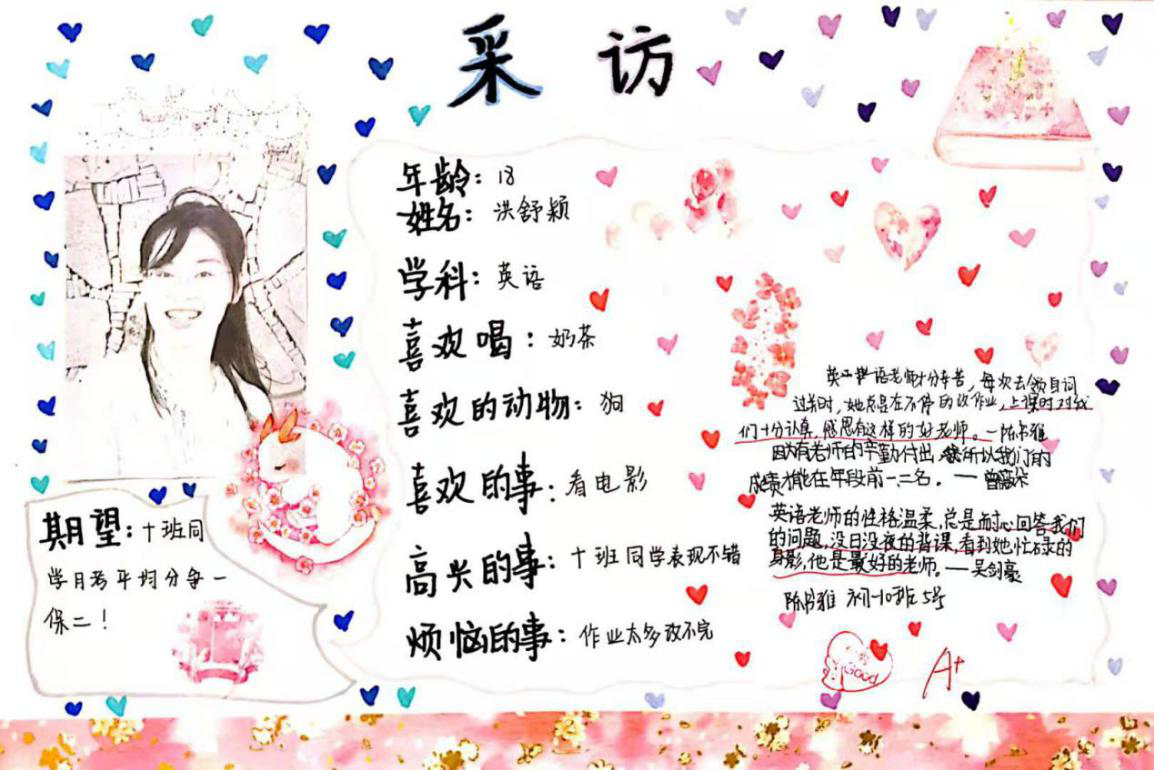 采访
年龄：18
姓名：洪舒颖
学科：英语
喜欢喝：奶茶
喜欢的动物：狗
喜欢的事：看电影
高兴的事：十班同学表现不错
烦恼的事：作业太多改不完
期望：十班同
学月考平均分争一
保二！
语老师十分辛苦，每次去领自词
过关时，她总是在不停的改作业，上课时对我
们十分认真，感恩有这样的好老师。—陈书雅
因为有老师的辛勤付出，所以我们的
成绩才能在年段前一二名。——曾
英语老师的性格温柔，总是耐心回答我们
的问题，没日没夜的背课，看到她忙碌的
身影，他是最好的老师。——吴剑豪
陈书雅 初一10班 5号
Good
A+